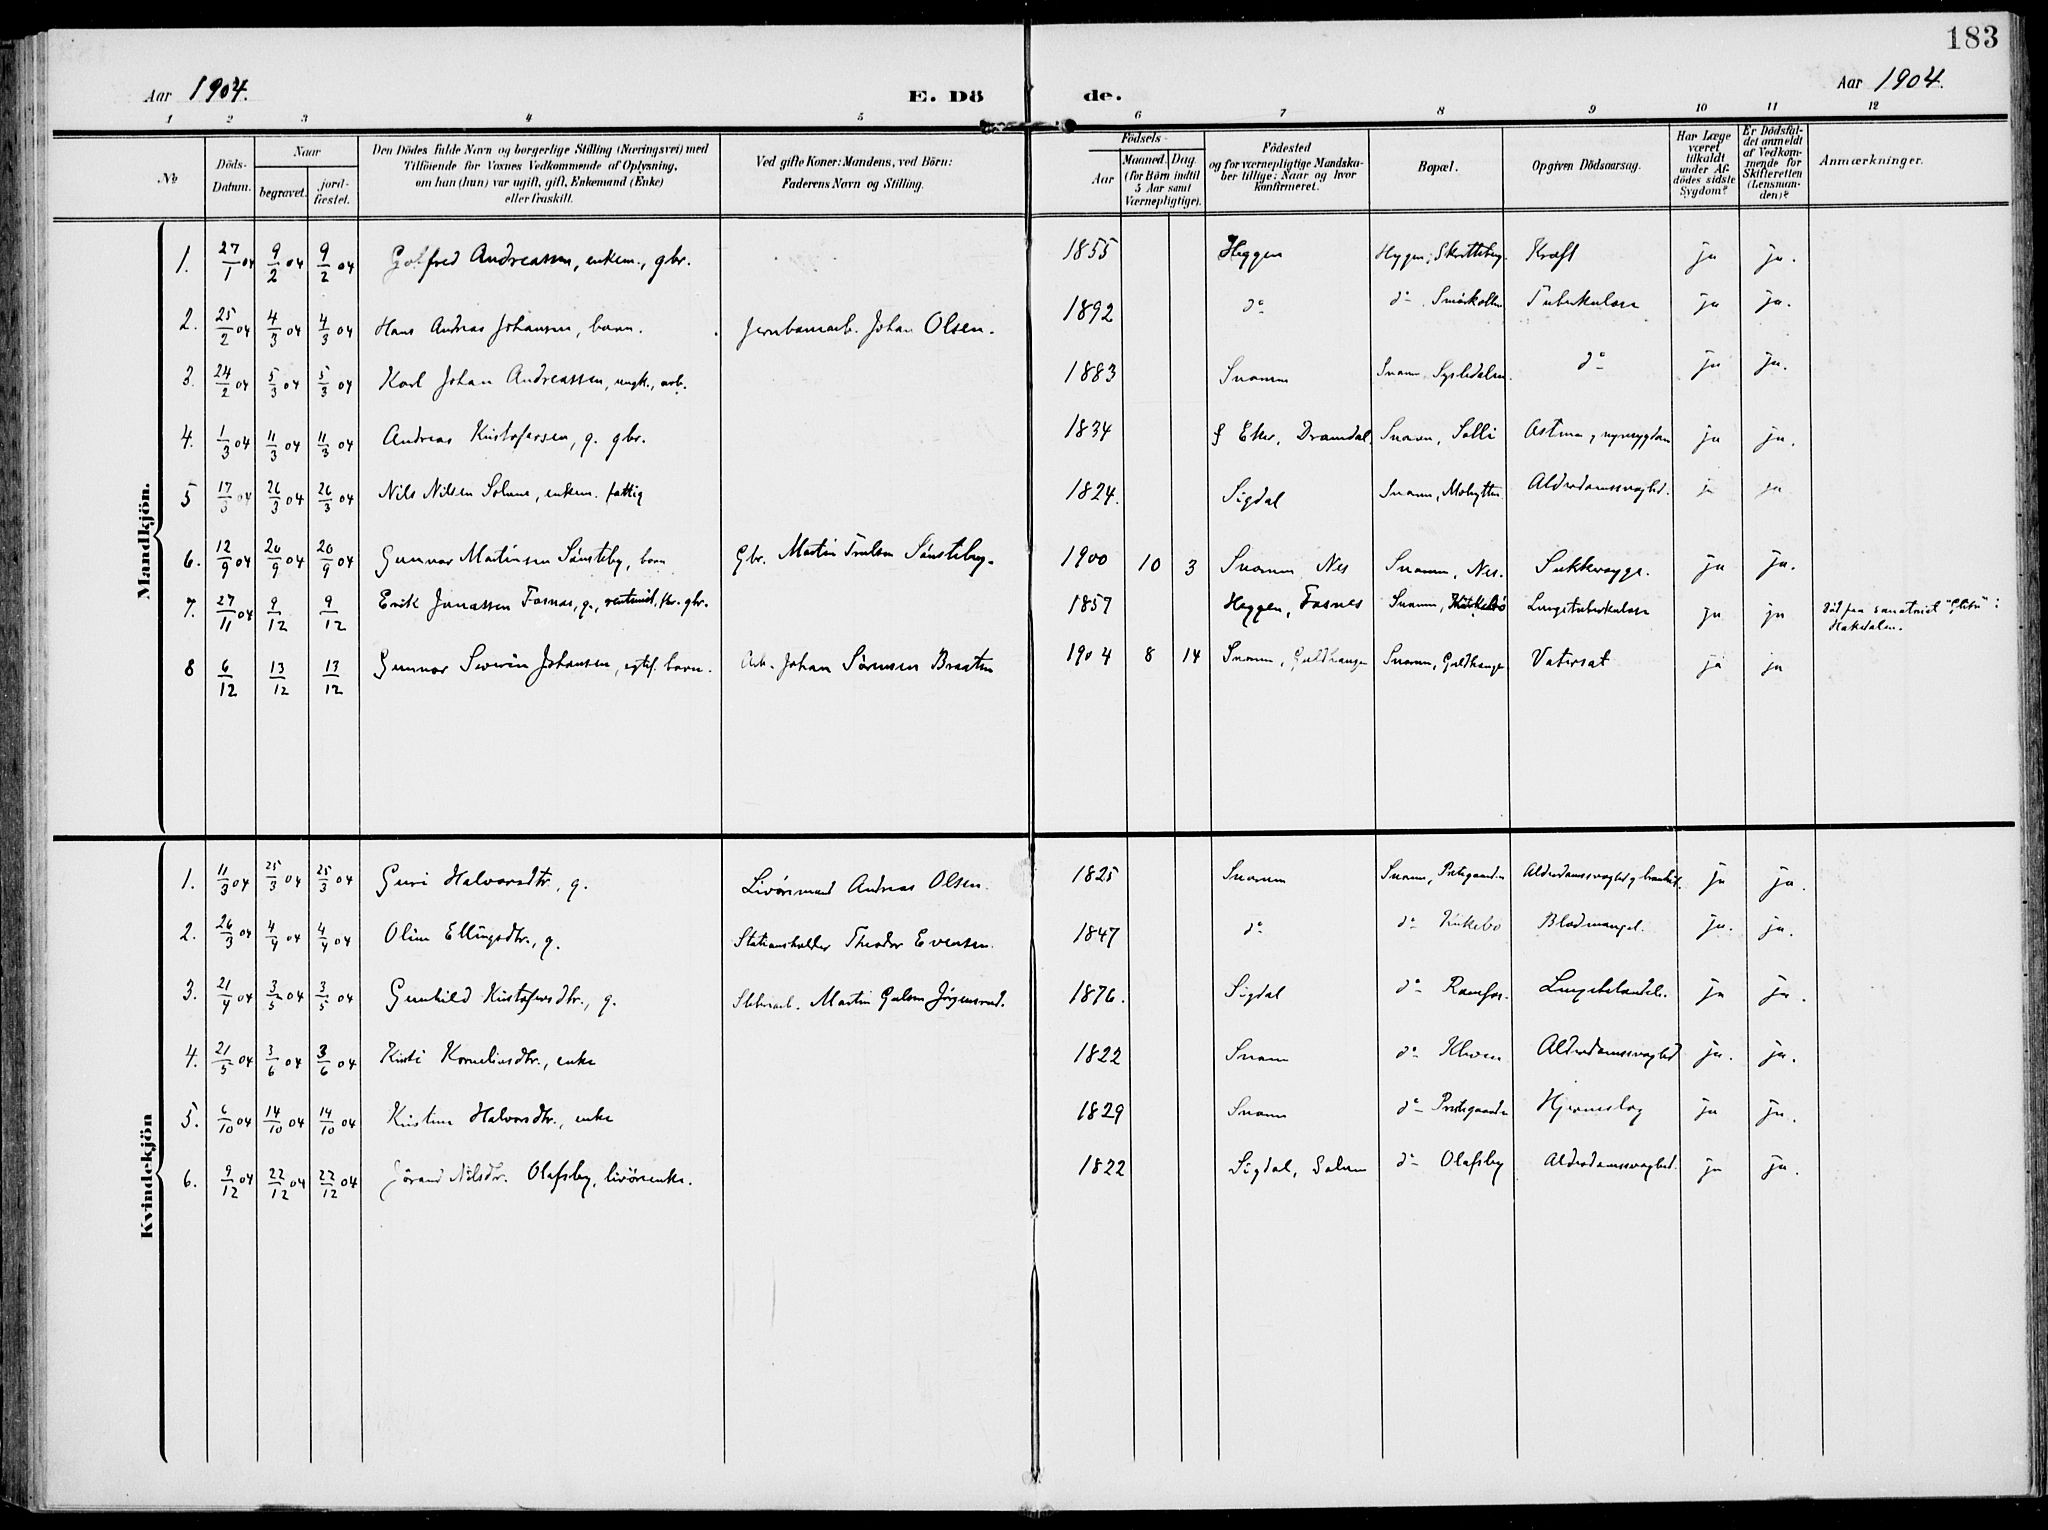 183
Aar 1904.
E. Dö de.
Aar 1904.
1 2 3 4 5 6 7 8 9 10 11 12
No
Döds-Datum.
Naar
begravet.
jord-fæstet.
Den Dödes fulde Navn og borgerlige Stilling (Næringsvei) med
Tilföiende for Voxnes Vedkommende af Oplysning,
om han (hun) var ugift, gift, Enkemand (Enke)
eller fraskilt.
Ved gifte Koner: Mandens, ved Börn:
Faderens Navn og Stilling.
Födsels-
Aar
Maaned. Dag.
(for Börn indtil
5 Aar samt
Værnepligtige).
Födested
og for værnepligtige Mandska-
ber tillige: Naar og hvor
konfirmeret.
Bopæl.
Opgiven Dödsaarsag.
Har Læge
været
tilkaldt
under Af-
dödes sidste
Sygdom?
Er Dödsfal-
det anmeldt
af Vedkom-
mende for
Skifteretten
(Lensman-
den)?
Anmærkninger.
Mandkjön.
1. 27/1 04 9/2 04 9/2 04 Gotfred Andreassen, enkem., gbr. 1855 Heggen Hygen, Kræft ja ja.
2. 25/2 04 4/3 04 4/3 04 Hans Andreas Johansen, barn. Jernbanearb. Johan Olsen. 1892 do do Tuberkulose ja ja.
3. 24/2 04 5/3 04 5/3 04 Karl Johan Andreassen, ungk., arb. 1883 Snarum Snarum, do ja ja.
4. 1/3 04 11/3 04 11/3 04 Andreas Kristofersen, g. gbr. 1834 Eker, Dramdal Snarum, Solli Astma og nyresygdom ja ja.
5 17/3 04 26/3 04 26/3 04 Nils Nilsen Solum, enkem. fattig 1824. Sigdal Snarum, Alderdomssvaghed. ja ja
6. 12/9 04 20/9 04 20/9 04 Gunnar Martinsen Sønsteby, barn Gbr. Martin Trulsen Sønsteby. 1900 10 3 Snarum Nes Snarum, Nes. Sukkersyge. ja ja.
7. 27/11 04 9/12 9/12 Erik Jonassen Fosnes, g., gbr. 1857 Heggen, Fosnes Snarum, Lungetuberkulose ja ja død paa sanatoriet "Glitre" i
Hakedalen.
8 6/12 13/12 13/12 Gunnar Severin Johansen, egtef. barn. Arb. Johan Sørensen Braaten 1904 8 14 Snarum, Guldhaugen Snarum, Guldhaugen Vatersot ja ja
Kvindekjön
1. 11/3 04 25/3 04 25/3 04 Guri Halvorsdtr, g. Livørsmand Andreas Olsen. 1825 Snarum Snarum, Prestegaarden Alderdomssvaghed og ja ja.
2. 26/3 04 4/4 04 4/4 04 Oline Ellingsdtr., g. Stationsholder Theodor Evensen. 1847 do do Kirkebø Blodmangel. ja. ja.
3. 21/4 04 3/5 04 3/5 04 Gunhild Kristofersdtr., g. Sliberiarb. Martin Gulsen Jørgensrud. 1876. Sigdal do Ramfos. ja ja.
4. 21/5 04 3/6 04 3/6 04 Kirsti Korneliusdtr., enke 1822 Snarum do Kleven Alderdomssvaghed ja. ja.
5. 6/10 04 14/10 04 14/10 04 Kristine Halvorsdtr., enke 1829 Snarum do Prestegaarden Hjerneslag ja ja.
6. 9/12 04 22/12 04 22/12 04 Jørand Nilsdtr. Olafsby, livørsenke. 1822 Sigdal, Solum do Olafsby Alderdomssvaghed. ja ja.